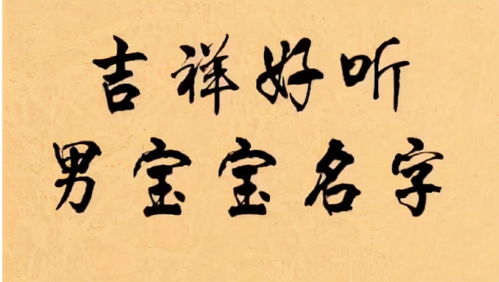 吉祥好听
男宝宝名字